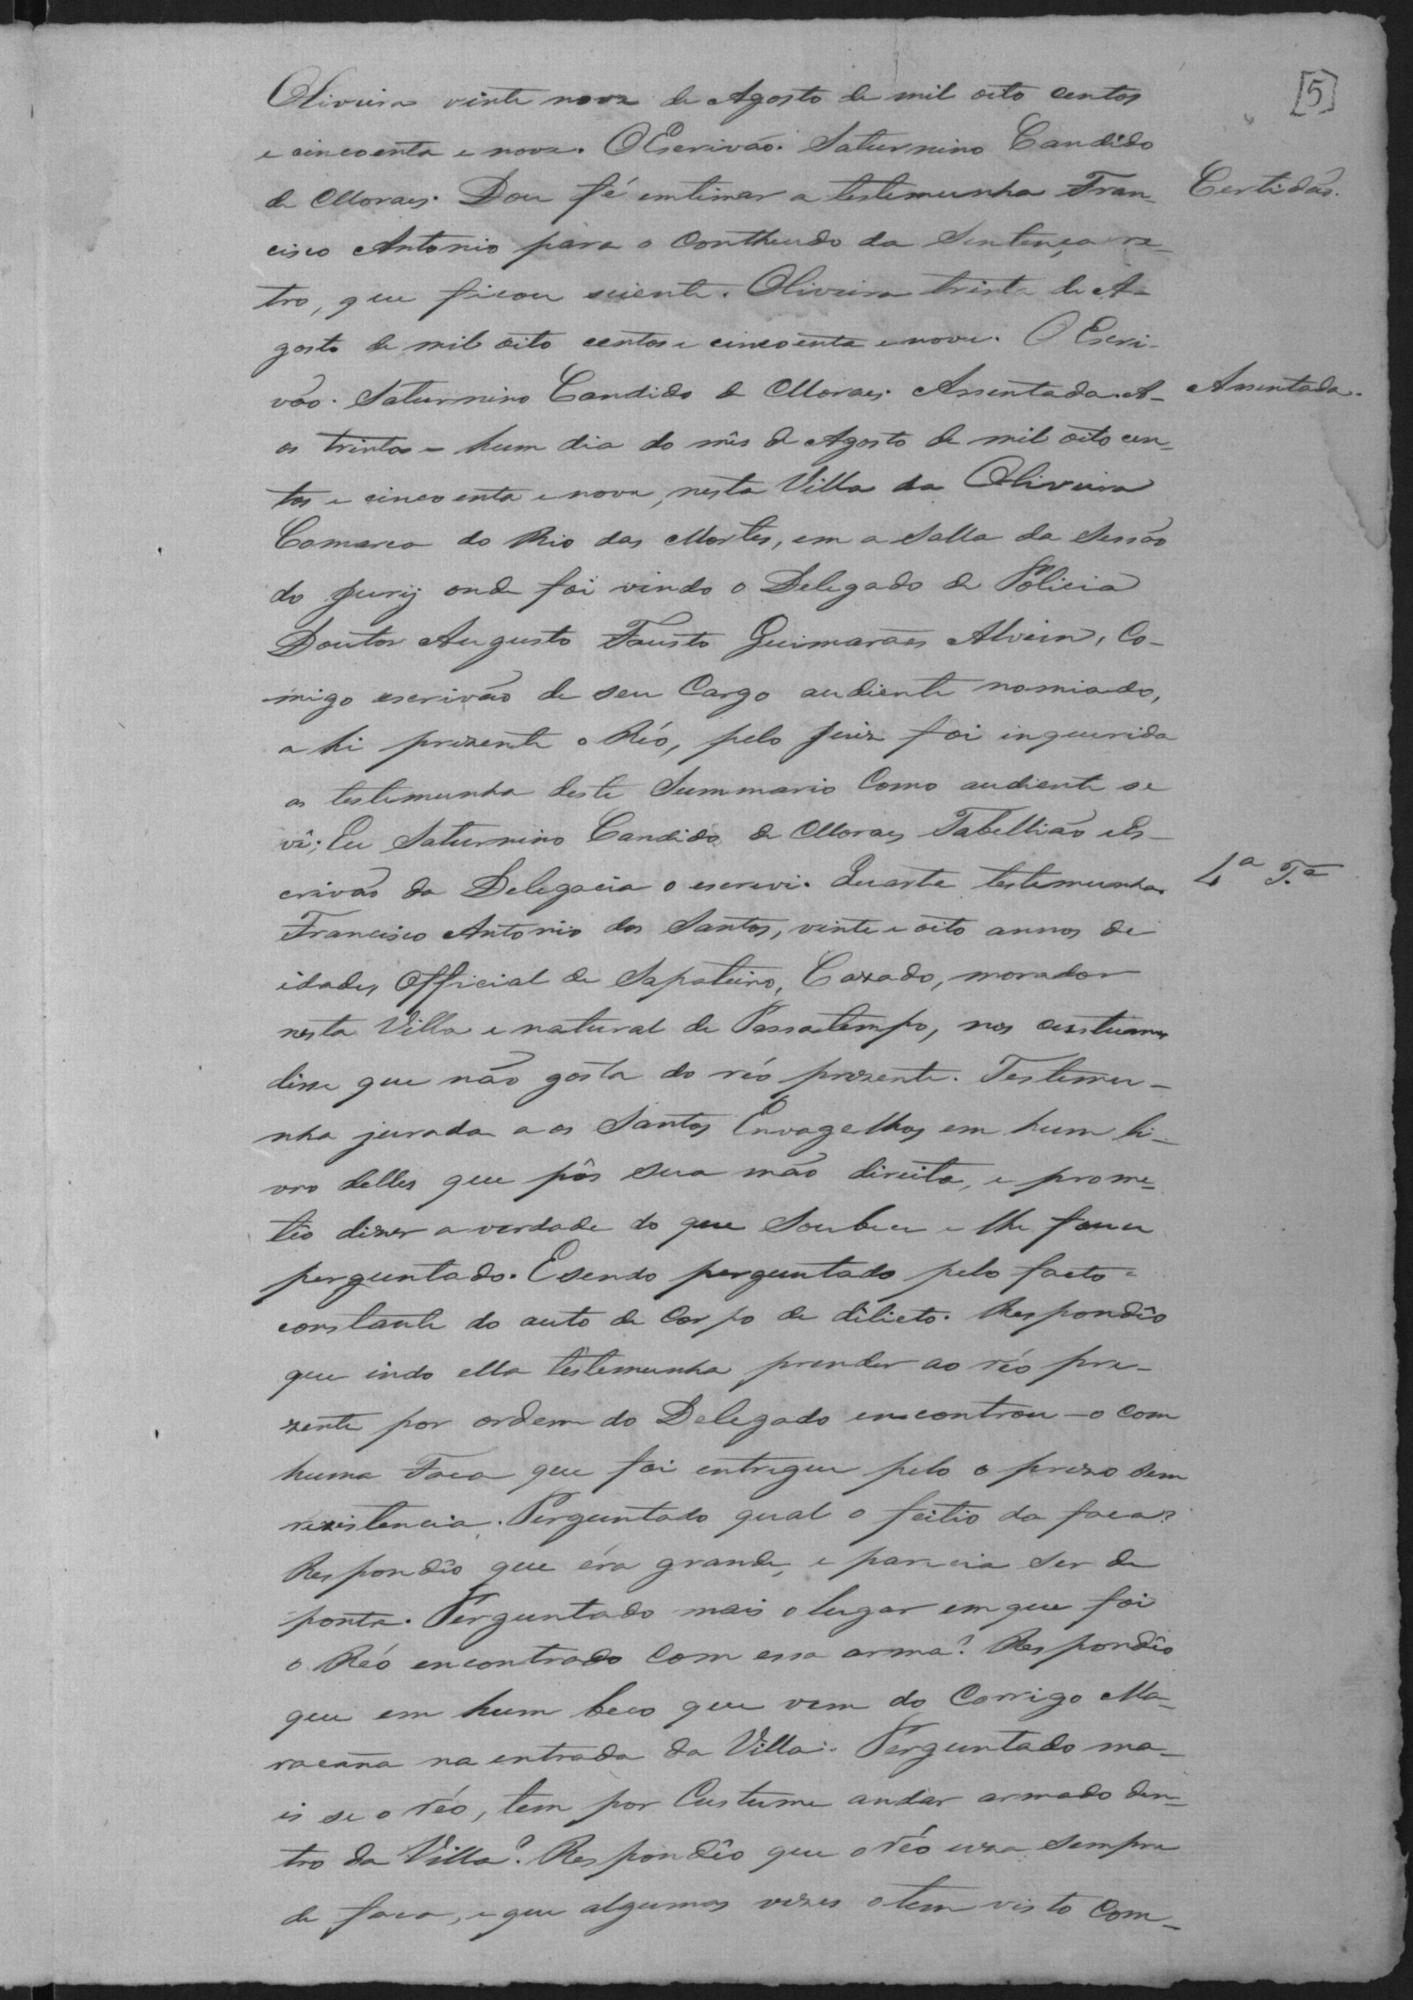 [5]
Oliveira vinte nove de Agosto de mil oito centos
e cincoenta e nove. O Escrivão. Saturnino Candido
de Moraes. Dou fé emtimar a testemunha Fran-
Certidão.
cisco Antonio para o Contheudo da Sentença re-
tro, que ficou sciente. Oliveira trinta de A-
gosto de mil oito centos e cincoenta e nove. O Escri-
vão. Saturnino Candido de Moraes. Assentada. A-
Assentada.
os trinta e hum dia do mês de Agosto de mil oito cen-
tos e cincoenta e nove, nesta Villa da Oliveira
Comarca do Rio das Mortes, em a Salla da Sessão
do Jurij onde foi vindo o Delegado de Policia
Doutor Augusto Fausto Guimarães Alvim, Co-
migo escrivão de seu Cargo audiente nomiado,
ahi prezente o Réo, pelo Juiz foi inquerida
as testemunha deste Summario Como audiente se
vê; Eu Saturnino Candido de Moraes Tabellião e Es-
crivão da Delegacia o escrevi. Quarta testemunha
4ª T.ª
Francisco Antonio dos Santos, vinte e oito annos de
idades, Official de Sapateiro, Cazado, morador
nesta Villa e natural de Passatempo, nos custumes
disse que não gosta do réo prezente. Testemu-
nha jurada aos Santos Envagelhos em hum li-
vro delles que pôs sua mão direita, e prome-
têo dizer a verdade do que Souber e lhe fôuer
perguntado. E sendo perguntado pelo facto
constante do auto de Corpo de dilicto. Respondêo
que indo ella testemunha prender ao réo pre-
zente por ordem do Delegado encontrou-o com
huma Faca que foi entregue pelo o prezo sem
rezistencia. Perguntado qual o feitio da faca?
Respondêo que éra grande, e parecia ser de
ponta. Perguntado mais o lugar em que foi
o Réo encontrado com essa arma? Respondêo
que em hum beco que vem do Corrigo Ma-
racana na entrada da Villa. Perguntado ma-
is se o réo, tem por Custume andar armado den-
tro da Villa? Respondêo que o réo uza sempre
de faca, e que algumas vezes o tem visto com-